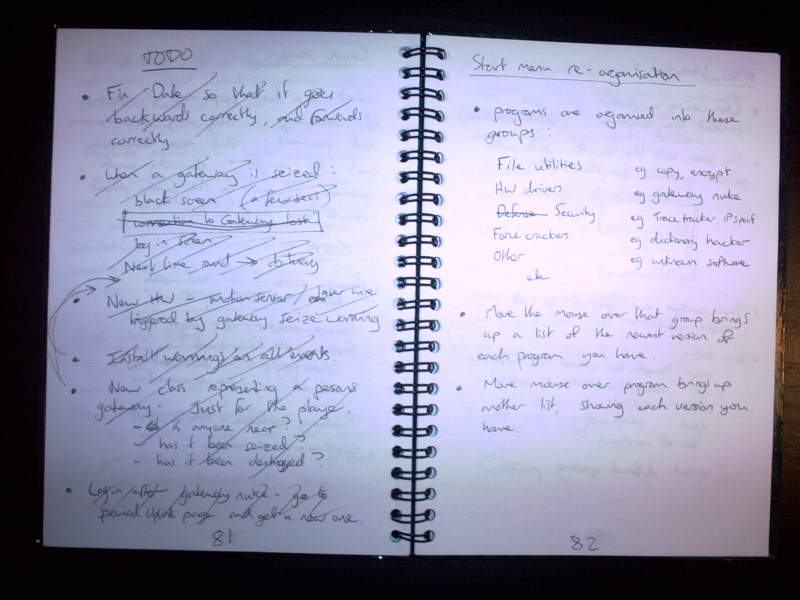 TODO
• Fix Date so that it goes
backwards correctly, and forwards
correctly
• When a gateway is seized :
black screen (a few secs)
connection to Gateway lost
log in screen
Next time round → obituary
• New HW - motion sensor / laser wire
triggered by gateway seize warning
• Install warnings on all events
• New class representing a persons
gateway. Just for the player.
- is anyone near?
- has it been seized?
- has it been destroyed?
• Login after gateway nuke - go to
special Uplink page and get a new one.
81
Start menu re-organisation
• programs are organised into these
groups :
File utilities eg copy, encrypt
HW drivers eg gateway nuke
Defense Security eg Trace tracker, IP spoof
Force crackers eg dictionary hacker
Other eg unknown software
etc
• Move the mouse over that group brings
up a list of the newest version of
each program you have.
• Move mouse over program brings up
another list, showing each version you
have.
82